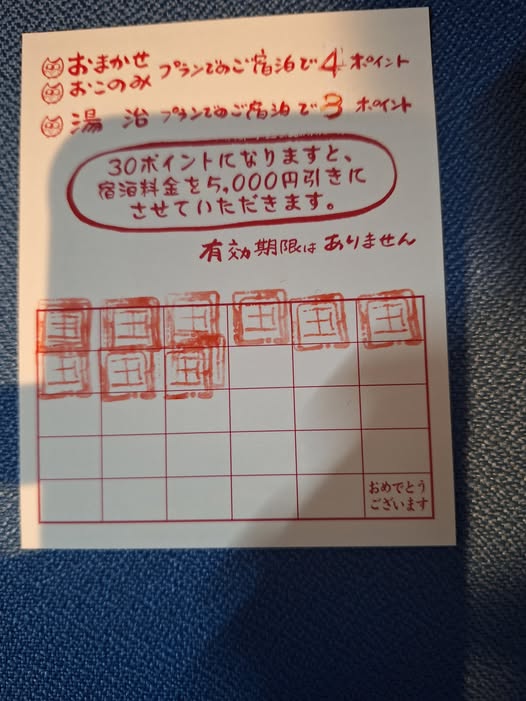 おまかせ
おこのみ プランでのご宿泊で4 ポイント
湯 治 プランでのご宿泊で3 ポイント
30ポイントになりますと、
宿泊料金を5,000円引きに
させていただきます。
有効期限は ありません
おめでとう
ございます